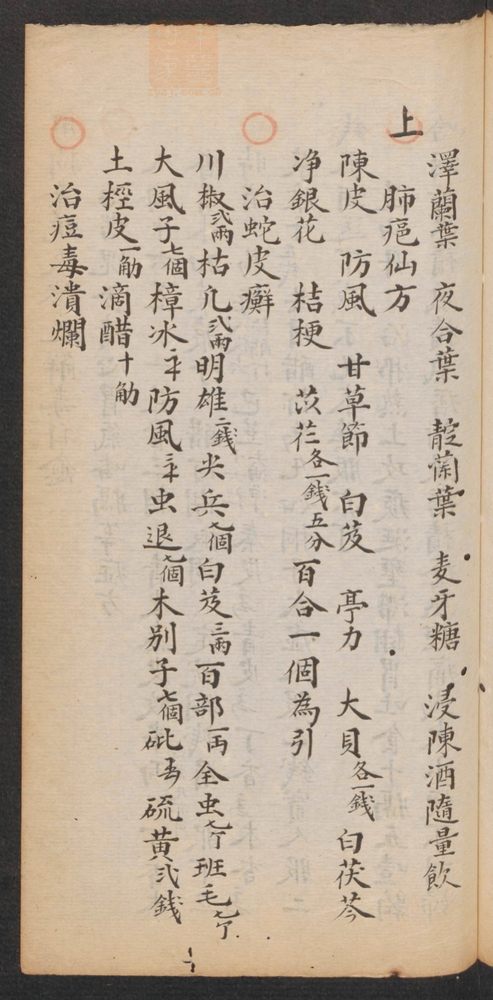 澤蘭葉 夜合葉 靛蘭葉 麦牙糖 浸陳酒隨量飲
上
肺疤仙方
陳皮 防風 甘草節 白芨 亭力 大貝各一錢 白茯苓
净銀花 桔梗 苡芢各一錢五分 百合一個為引
治蛇皮癬
川椒弍兩 枯凢弍兩 明雄二錢 尖兵七個 白芨三兩 百部一両 全虫七个 班毛七个
大風子七個 樟冰 防風 虫退七個 木別子七個 砒 硫黄弍錢
土桱皮一觔 滴醋十觔
治痘毒潰爛